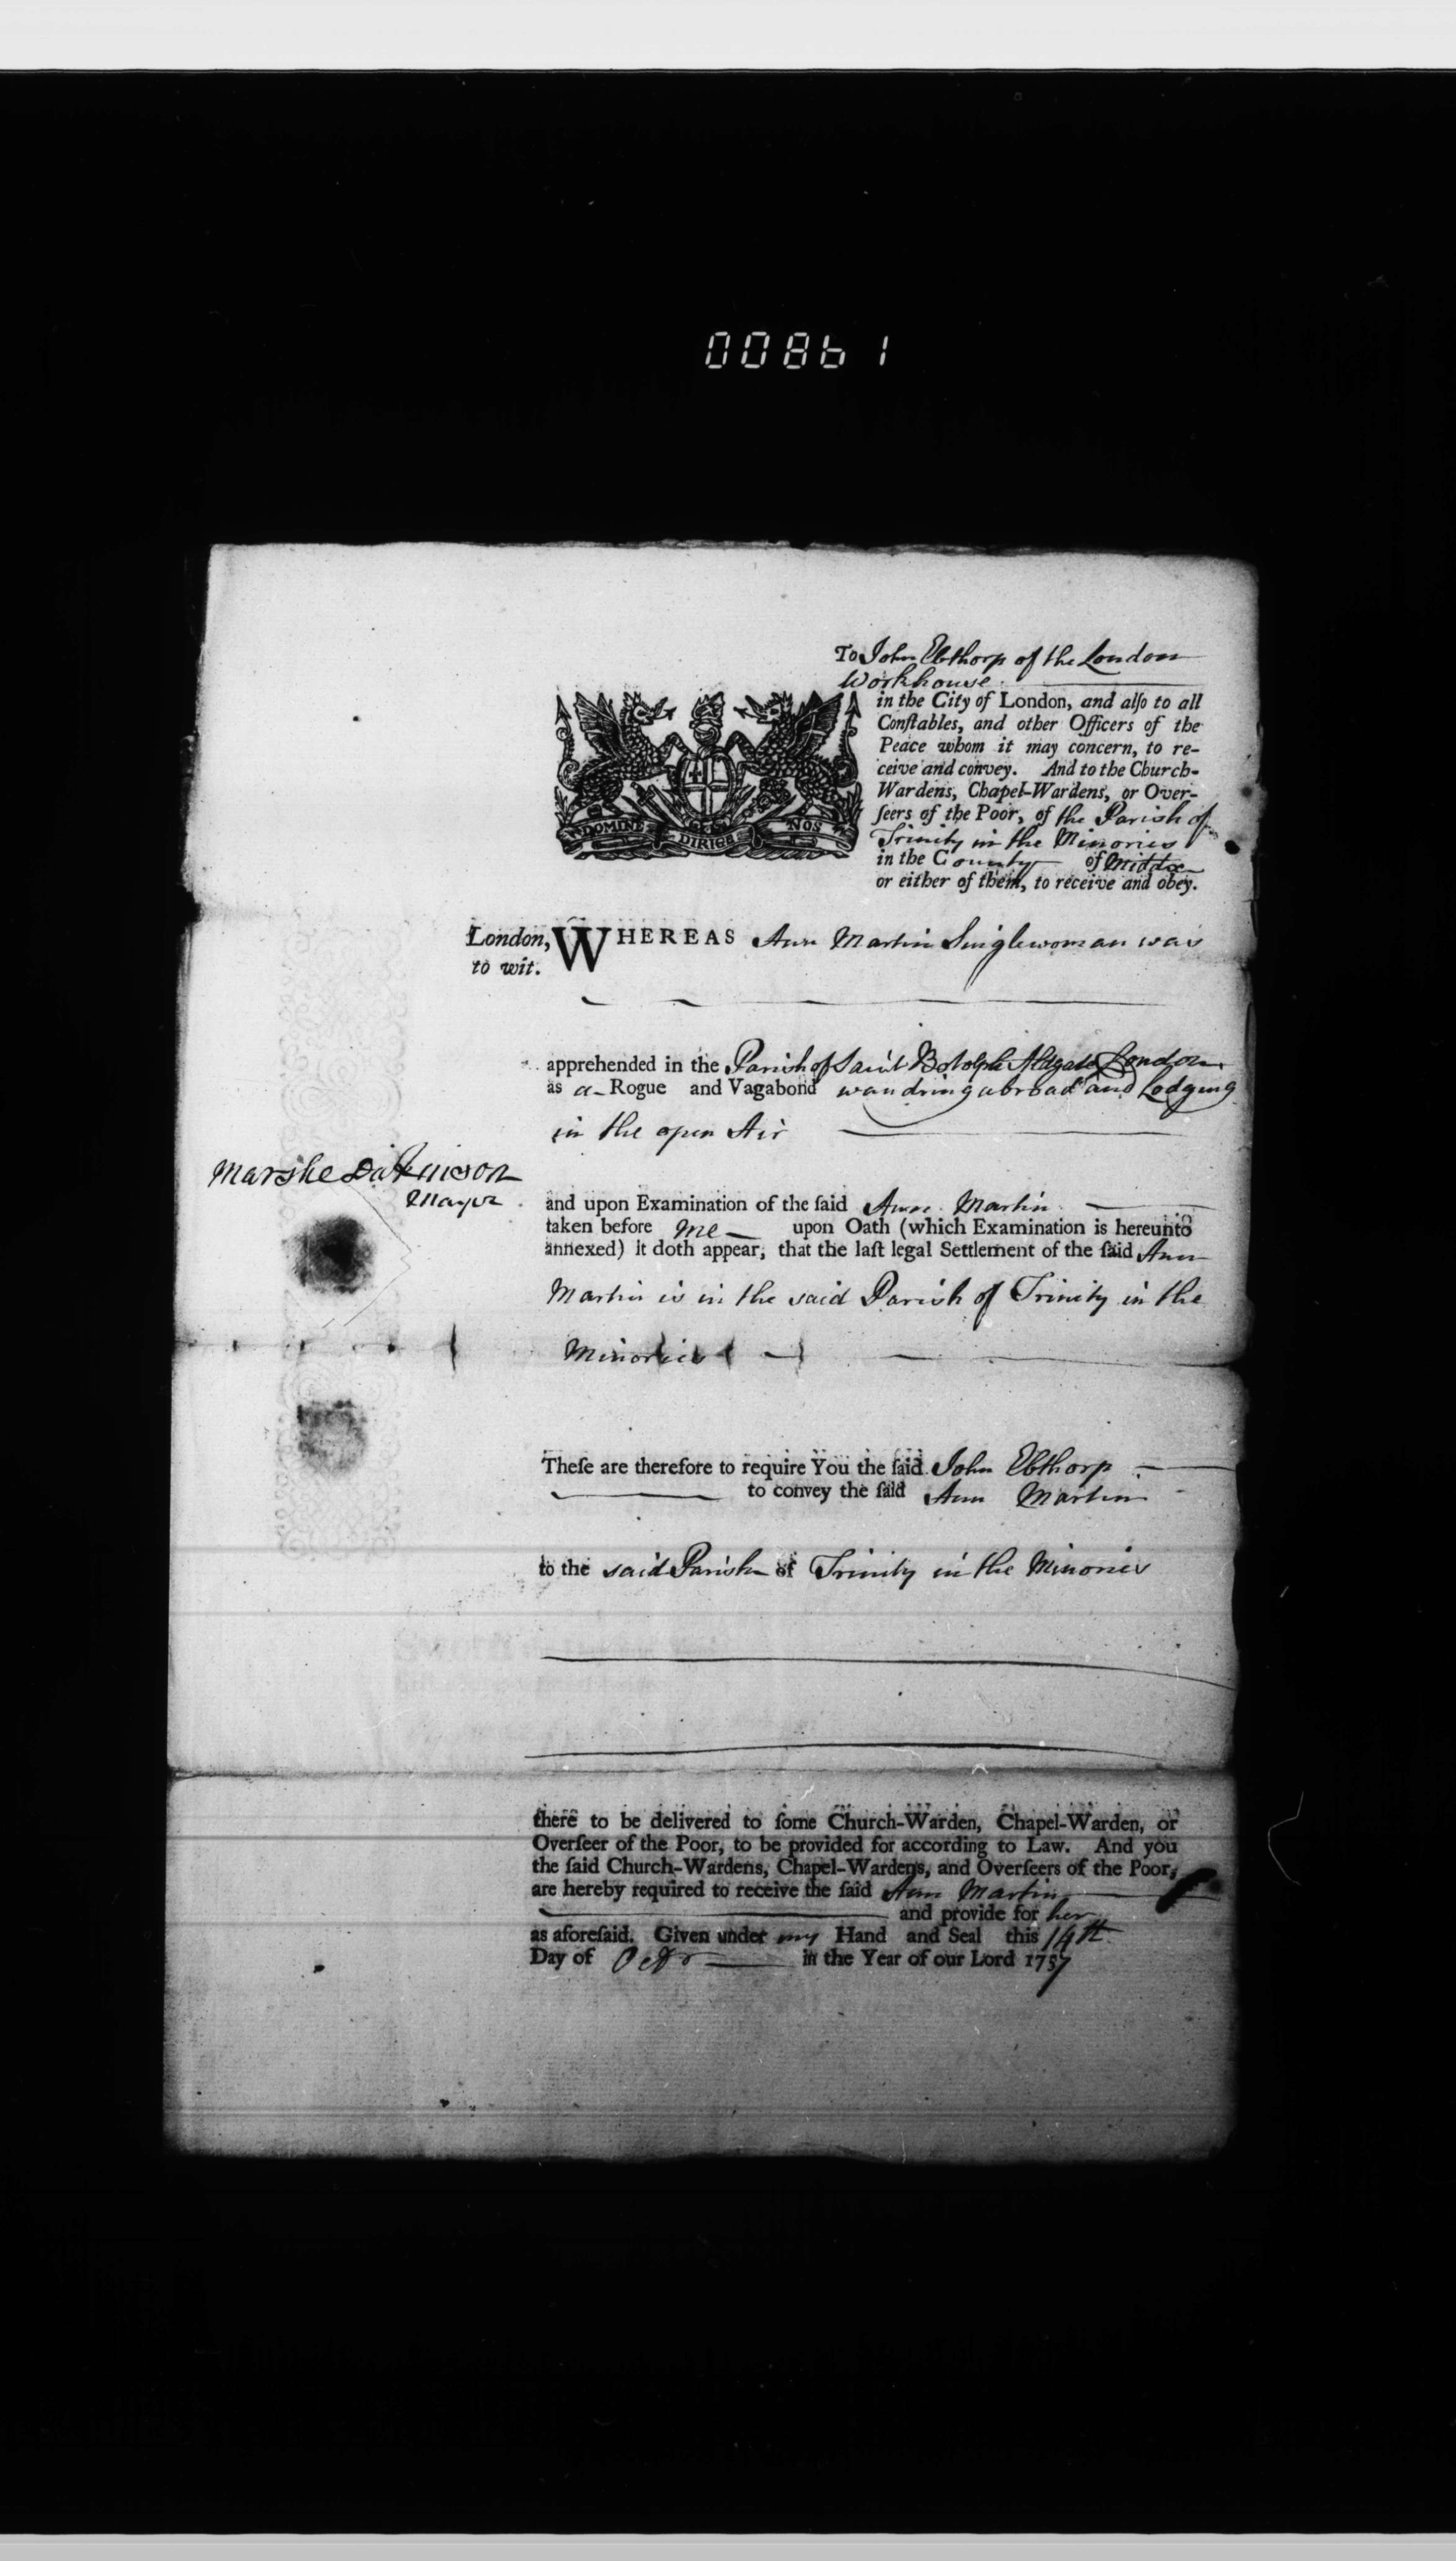 008b1
To John Elsthorp of the London
Workhouse
in the City of London, and alſo to all
Conſtables, and other Officers of the
Peace whom it may concern, to re-
ceive and convey. And to the Church-
Wardens, Chapel-Wardens, or Over-
ſeers of the Poor, of the Parish of
Trinity in the Minories
in the County of Middx
or either of them, to receive and obey.
DOMINE DIRIGE NOS
London, WHEREAS Ann Martin Singlewoman was
to wit.
apprehended in the Parish of Saint Botolph Aldgate London
as a Rogue and Vagabond wandring abroad and Lodging
in the open Air
Marshe Dickinson
Mayor
and upon Examination of the ſaid Ann Martin
taken before me upon Oath (which Examination is hereunto
annexed) it doth appear, that the laſt legal Settlement of the ſaid Ann
Martin is in the said Parish of Trinity in the
Minories
Theſe are therefore to require You the ſaid John Elsthorp
to convey the ſaid Ann Martin
to the said Parish of Trinity in the Minories
there to be delivered to ſome Church-Warden, Chapel-Warden, or
Overſeer of the Poor, to be provided for according to Law. And you
the ſaid Church-Wardens, Chapel-Wardens, and Overſeers of the Poor,
are hereby required to receive the ſaid Ann Martin
and provide for her
as aforeſaid. Given under my Hand and Seal this 14th
Day of Octr in the Year of our Lord 1757